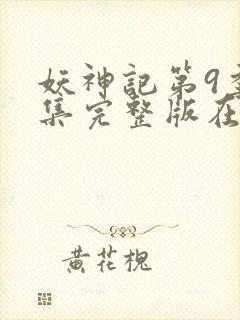 妖神記第9季
集完整版在
黄花槐